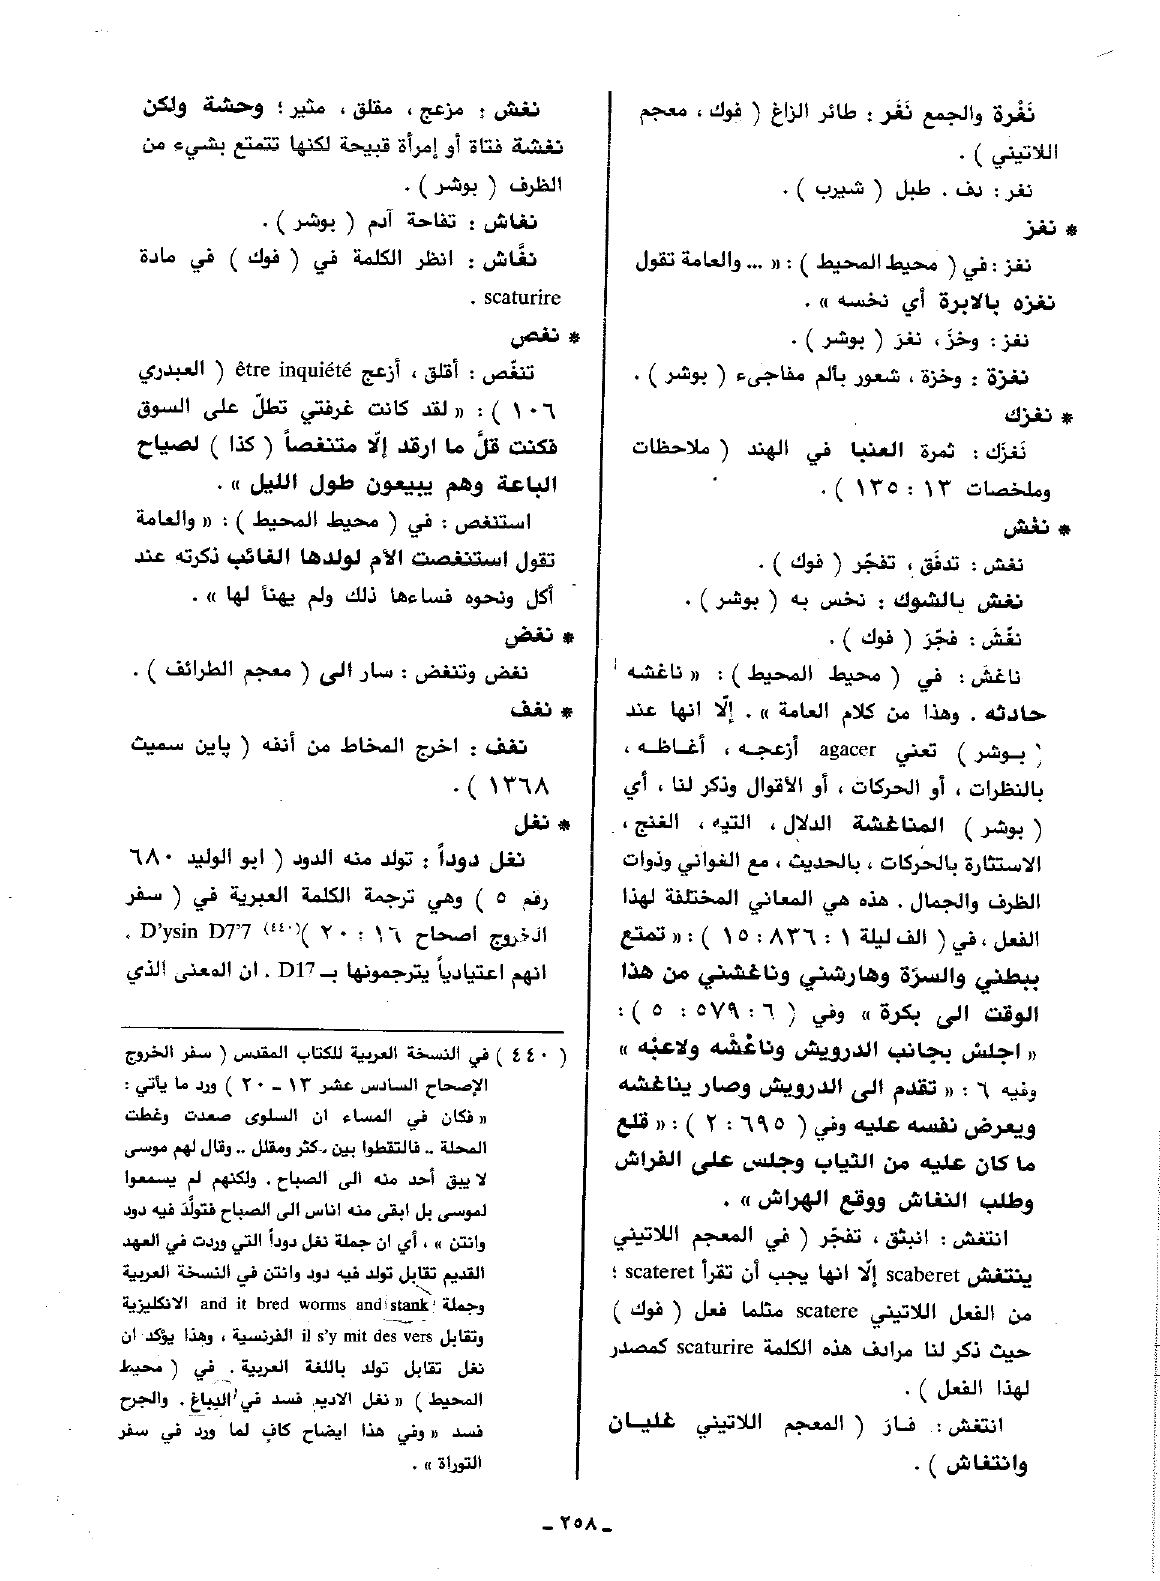 نَغْرة والجمع نَغَر : طائر الزاغ ( فوك ، معجم
اللاتيني ) .
نغر : دف . طبل ( شيرب ) .
* نغز
نغز : في ( محيط المحيط ) : « ... والعامة تقول
نغزه بالابرة أي نخسه » .
نغز : وخز ، نغز ( بوشر ) .
نغزة : وخزة ، شعور بألم مفاجىء ( بوشر ) .
* نغزك
نَغزَك : ثمرة العنبا في الهند ( ملاحظات
وملخصات ١٣ : ١٣٥ ) .
* نغش
نغش : تدفّق ، تفجّر ( فوك ) .
نغش بالشوك : نخس به ( بوشر ) .
نغّشَ : فجّرَ ( فوك ) .
ناغش : في ( محيط المحيط ) : « ناغشه
حادثه . وهذا من كلام العامة » . إلّا انها عند
( بوشر ) تعني agacer أزعجه ، أغاظه ،
بالنظرات ، أو الحركات ، أو الأقوال وذكر لنا ، أي
( بوشر ) المناغشة الدلال ، التيه ، الغنج ،
الاستثارة بالحركات ، بالحديث ، مع الغواني وذوات
الظرف والجمال . هذه هي المعاني المختلفة لهذا
الفعل ، في ( الف ليلة ١ : ٨٣٦ : ١٥ ) : « تمتع
ببطني والسرّة وهارشني وناغشني من هذا
الوقت الى بكرة » وفي ( ٦ : ٥٧٩ : ٥ ) :
« اجلس بجانب الدرويش وناغْشه ولاعبْه »
وفيه ٦ : « تقدم الى الدرويش وصار يناغشه
ويعرض نفسه عليه وفي ( ٦٩٥ : ٢ ) : « قلع
ما كان عليه من الثياب وجلس على الفراش
وطلب النغاش ووقع الهراش » .
انتغش : انبثق ، تفجّر ( في المعجم اللاتيني
ينتغش scaberet إلّا انها يجب أن تقرأ scateret ؛
من الفعل اللاتيني scatere مثلما فعل ( فوك )
حيث ذكر لنا مرادف هذه الكلمة scaturire كمصدر
لهذا الفعل ) .
انتغش : فار ( المعجم اللاتيني غليان
وانتغاش ) .
نغش : مزعج ، مقلق ، مثير ؛ وحشة ولكن
نغشة فتاة أو إمرأة قبيحة لكنها تتمتع بشيء من
الظرف ( بوشر ) .
نغاش : تفاحة آدم ( بوشر ) .
نغّاش : انظر الكلمة في ( فوك ) في مادة
scaturire .
* نغص
تنغّص : أقلق ، أزعج être inquiété ( العبدري
١٠٦ ) : « لقد كانت غرفتي تطلّ على السوق
فكنت قلَّ ما ارقد إلّا متنغصاً ( كذا ) لصياح
الباعة وهم يبيعون طول الليل » .
استنغص : في ( محيط المحيط ) : « والعامة
تقول استنغصت الأم لولدها الغائب ذكرته عند
أكل ونحوه فساءها ذلك ولم يهنأ لها » .
* نغض
نغض وتنغض : سار الى ( معجم الطرائف ) .
* نغف
نغف : اخرج المخاط من أنفه ( پاين سميث
١٣٦٨ ) .
* نغل
نغل دوداً : تولد منه الدود ( ابو الوليد ٦٨٠
رقم ٥ ) وهي ترجمة الكلمة العبرية في ( سفر
الخروج اصحاح ١٦ : ٢٠ )(٤٤٠) D'ysin D7'7 .
انهم اعتيادياً يترجمونها بـ D17 . ان المعنى الذي
( ٤٤٠ ) في النسخة العربية للكتاب المقدس ( سفر الخروج
الإصحاح السادس عشر ١٣ - ٢٠ ) ورد ما يأتي :
« فكان في المساء ان السلوى صعدت وغطت
المحلة .. فالتقطوا بين مكثر ومقلل .. وقال لهم موسى
لا يبق أحد منه الى الصباح . ولكنهم لم يسمعوا
لموسى بل ابقى منه اناس الى الصباح فتولَّد فيه دود
وانتن » ، أي ان جملة نغل دوداً التي وردت في العهد
القديم تقابل تولد فيه دود وانتن في النسخة العربية
وجملة and it bred worms and stank الانكليزية
وتقابل il s'y mit des vers الفرنسية ، وهذا يؤكد ان
نغل تقابل تولد باللغة العربية . في ( محيط
المحيط ) « نغل الاديم فسد في الدباغ . والجرح
فسد « وفي هذا ايضاح كافٍ لما ورد في سفر
التوراة » .
ـ ٢٥٨ ـ